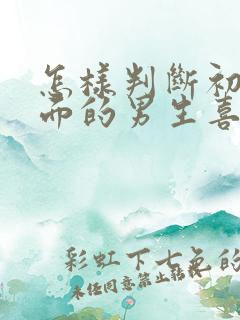 怎样判断初
面的男生喜
彩虹下七色的
未经同意禁止转载